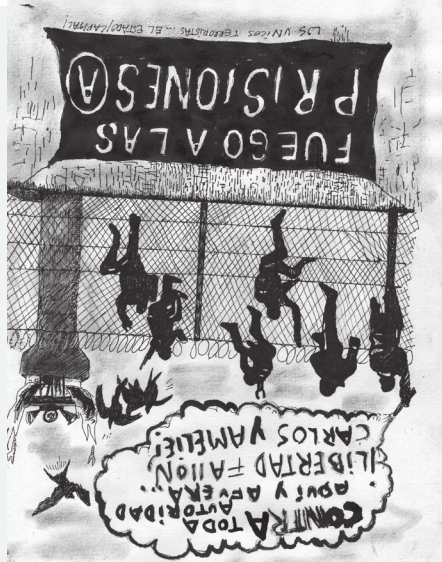 CONTRA TODA
AUTORIDAD
AQUÍ Y AFUERA...
¡LIBERTAD FALLON
CARLOS Y AMELIE!
FUEGO A LAS
PRISIONES Ⓐ
LOS UNICOS TERRORISTAS... EL ESTADO/CAPITAL!